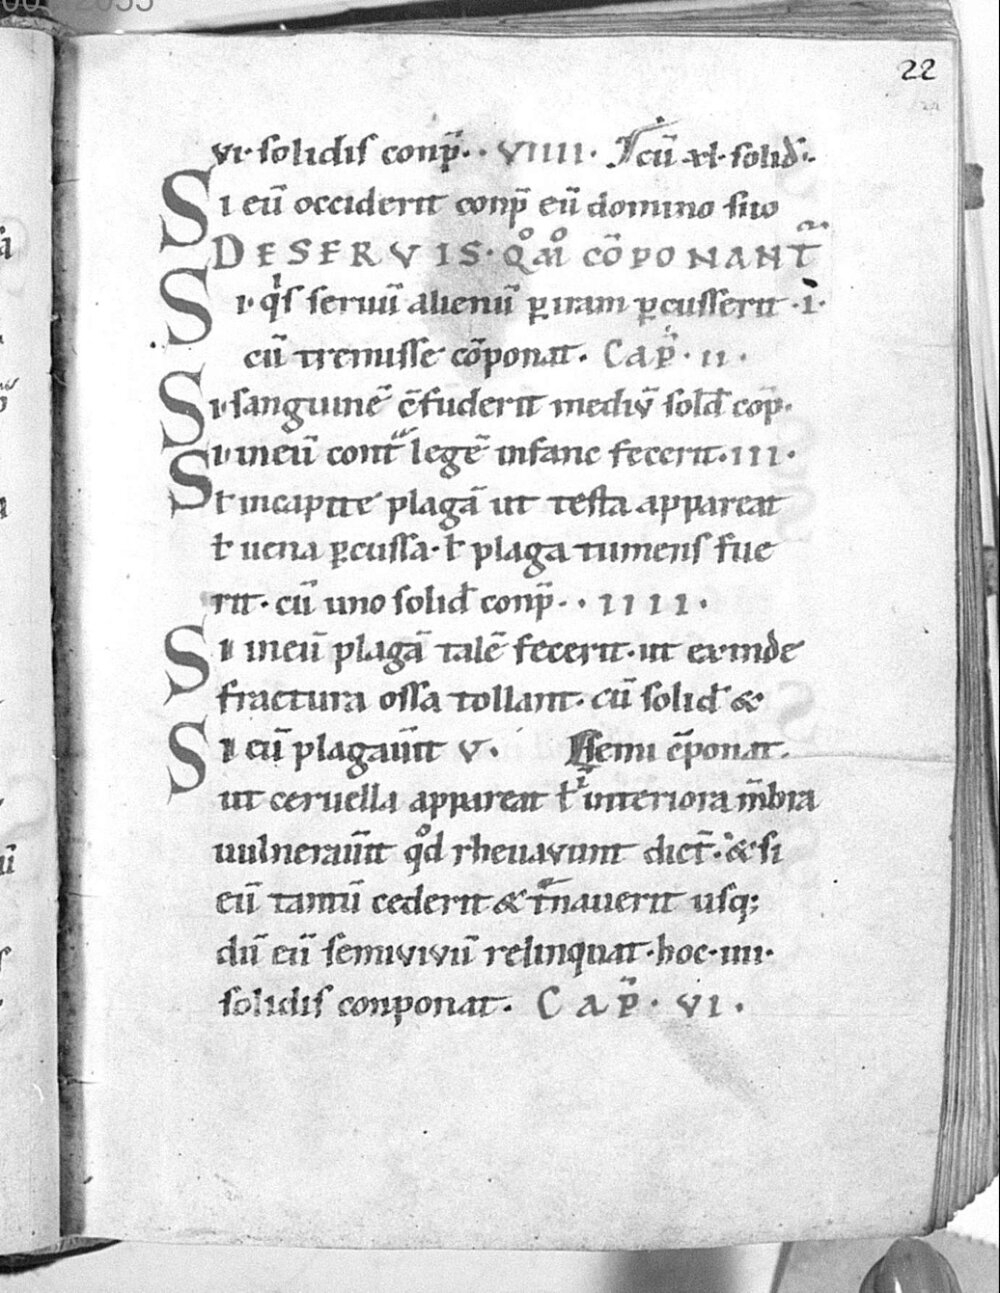 22
vi· solidis conp̄·· VIIII· I cū xl· solid̄·
Si eū occiderit conp̄ eū domino suo
DE SERVIS· Qͦmͦ CŌPONANT̄
Si· qⁱs seruū alienū ꝑ iram ꝑcusserit ·I·
cū tremisse cōponat· Cap̄· II·
Si· sanguinē ēfuderit mediū sold̄ cop̄·
Si· in eū cont͛ legē infanc fecerit· III·
Sƚ in capite plagā ut testa appareat
ƚ uena ꝑcussa· ƚ plaga tumens fue
rit· cū uno solid̄ conp̄·· IIII·
Si in eū plagā talē fecerit· ut exinde
fractura ossa tollant· cū solid̄ &
Si eū plagauīt V· semi cōponat·
ut ceruella appareat ƚ interiora m̄bra
uulnerauīt qͦd rheuavunt dict̄· & si
eū tantū cederit & t̄nauerit usq;
dū eū semivivū relinquat· hoc· IIII·
solidis conponat· Cap̄· VI·